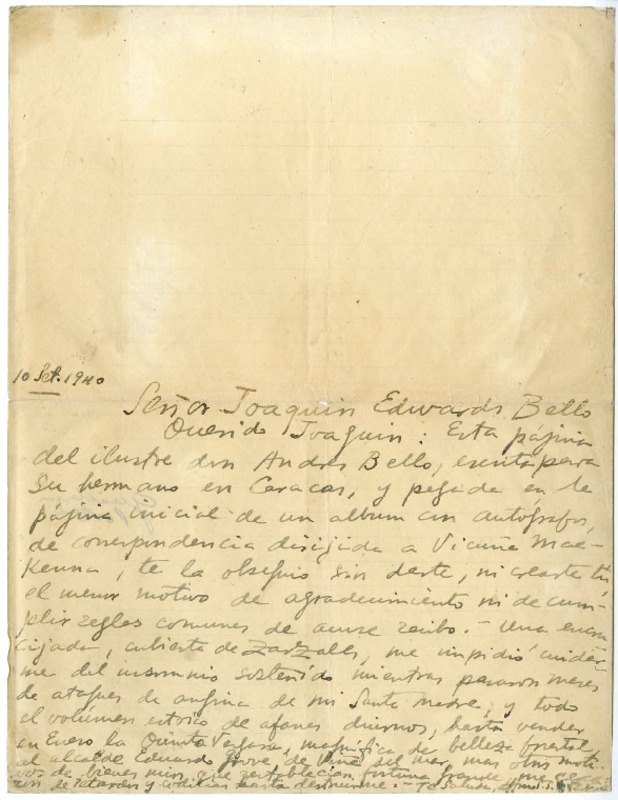 10 Set. 1940
Señor Joaquin Edwards Bello
Querido Joaquin: Esta página
del ilustre don Andrés Bello, escrita para
su hermano en Caracas, y pegada en la
página inicial de un album con autógrafos,
de correspondencia dirijida a Vicuña Mac-
Kenna, te la obsequio sin darte, ni crearte tú
el menor motivo de agradecimiento ni de cum-
plir reglas comunes de acuse recibo.- Una encru
cijada, cubierta de zarzales, me impidió cuidar
me del insomnio sostenido mientras pasaron meses
de ataques de angina de mi Santa Madre, y todo
el volúmen de afanes diurnos, hasta vender
en Enero la Quinta Vergara, magnífica de belleza forestal,
al alcalde Eduardo Grove de Viña del Mar, mas otros moti
vos de bienes mios, que restablecian fortuna grande, me
de y hasta Te saluda,